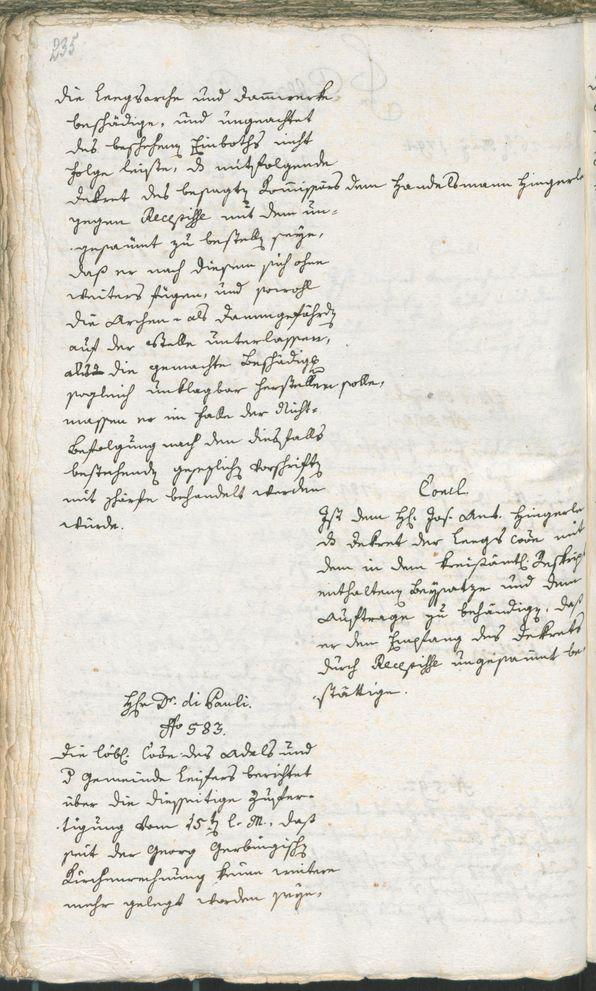 235
die Leegsarche und Dam̄werke
beschädige, und ungeachtet
des beschehenen Einboths nicht
folge leiste, das mitfolgende
Dekret des besagten Kom̄issärs dem Handelsmann Hingerle
gegen Recepisse mit dem un-
gesäumt zu bestellen seye,
daß er nach diesem sich ohne
weiters fügen, und sowohl
die Archen- als Dammgefährden
auf der Stelle unterlassen,
als die gemachte Beschädigg
sogleich unklagbar herstellen solle,
massen er im Falle der Nicht-
befolgung nach den diesfalls
bestehenden gesezlichen Vorschriften
mit Schärfe behandelt werden
würde.
Concl.
Ist dem H. Jos. Ant. Hingerle
das Dekret der Leegs Coōn mit
dem in dem kreisämtl. Reskript
enthaltenen Beysatze und dem
Auftrage zu behändigen, daß
er den Empfang des Dekrets
durch Recepisse ungesäumt be-
stättige.
Hr Dr. di Pauli.
No 583.
Die löbl. Coōn des Adels und
der Gemeinde Leifers berichtet
über die diesseitige Zufer-
tigung vom 15ten l. M., daß
seit der Georg Gerbingischen
Kirchenrechnung keine weitere
mehr gelegt worden seye,